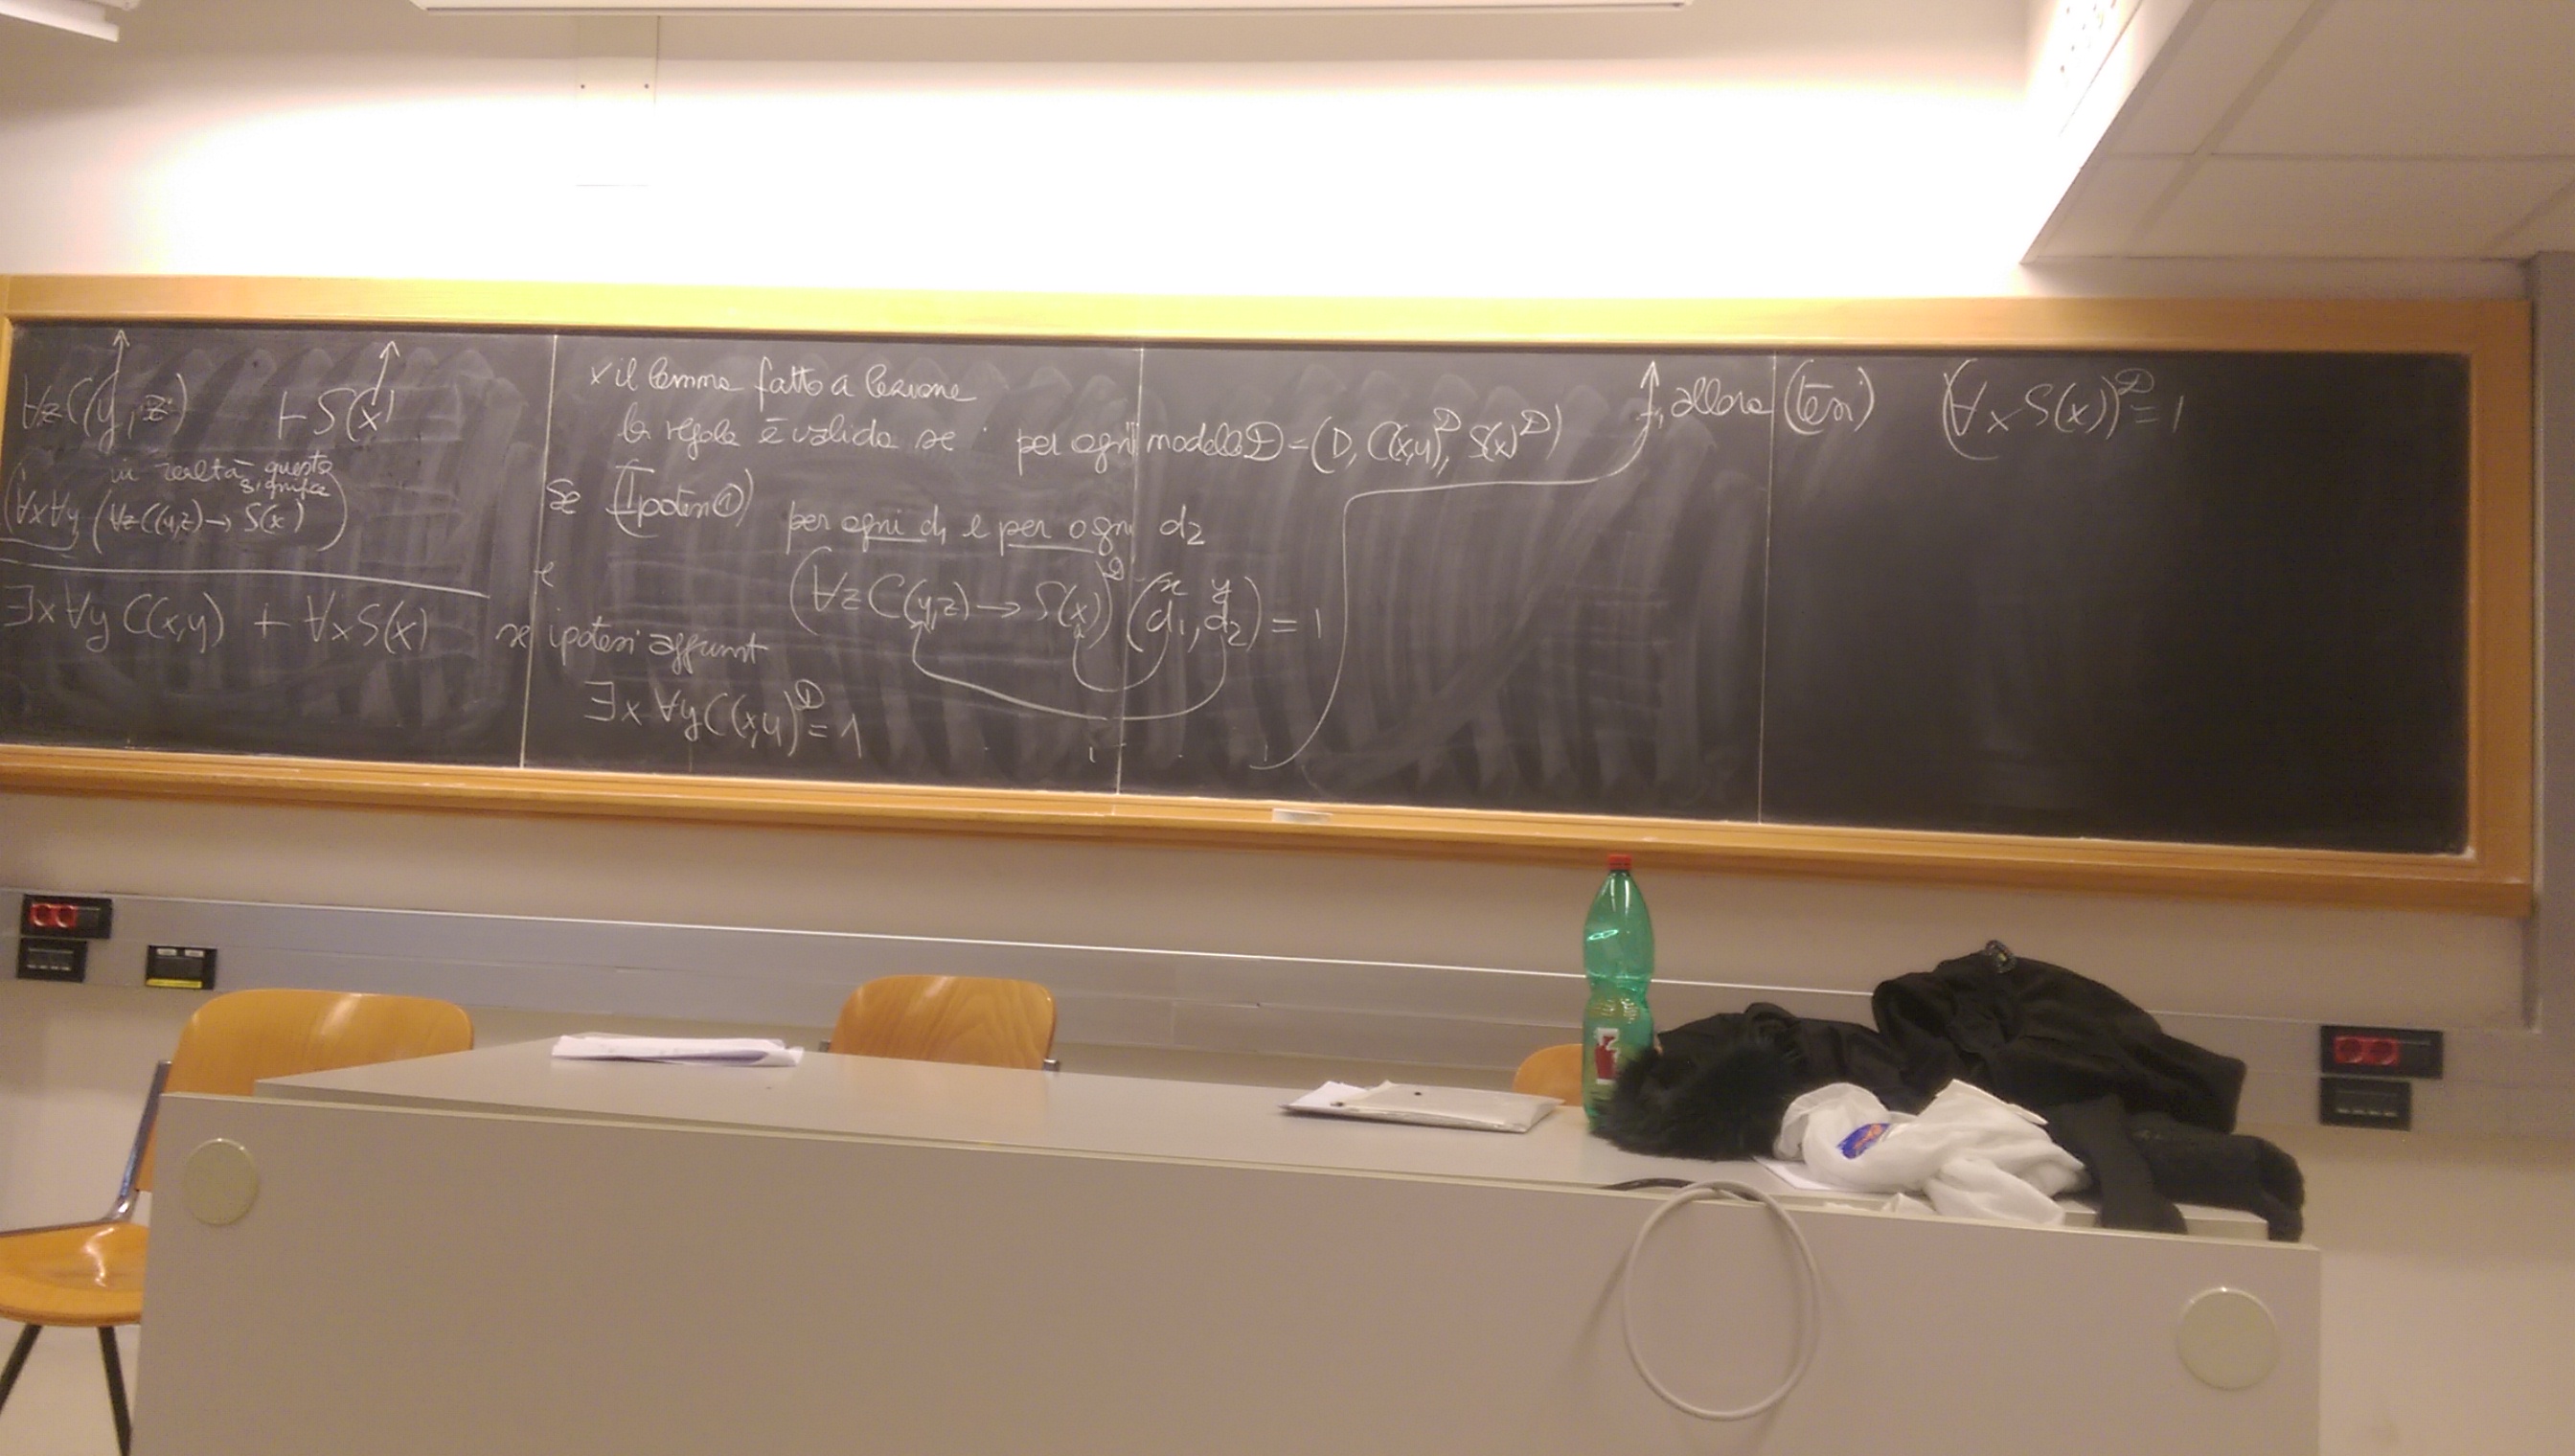 ∀z C(y,z) ⊢ S(x)
in realtà questo
significa
(∀x∀y (∀z C(y,z) → S(x))
∃x ∀y C(x,y) ⊢ ∀x S(x)
x il lemma fatto a lezione
la regola è valida se per ogni modello D = (D, C(x,y)^D, S(x)^D)
se (Ipotesi ①)
per ogni d₁ e per ogni d₂
(∀z C(y,z) → S(x))^D (d₁, d₂) = 1
x y
e
se ipotesi
∃x ∀y C(x,y)^D = 1
, allora (tesi) (∀x S(x))^D = 1